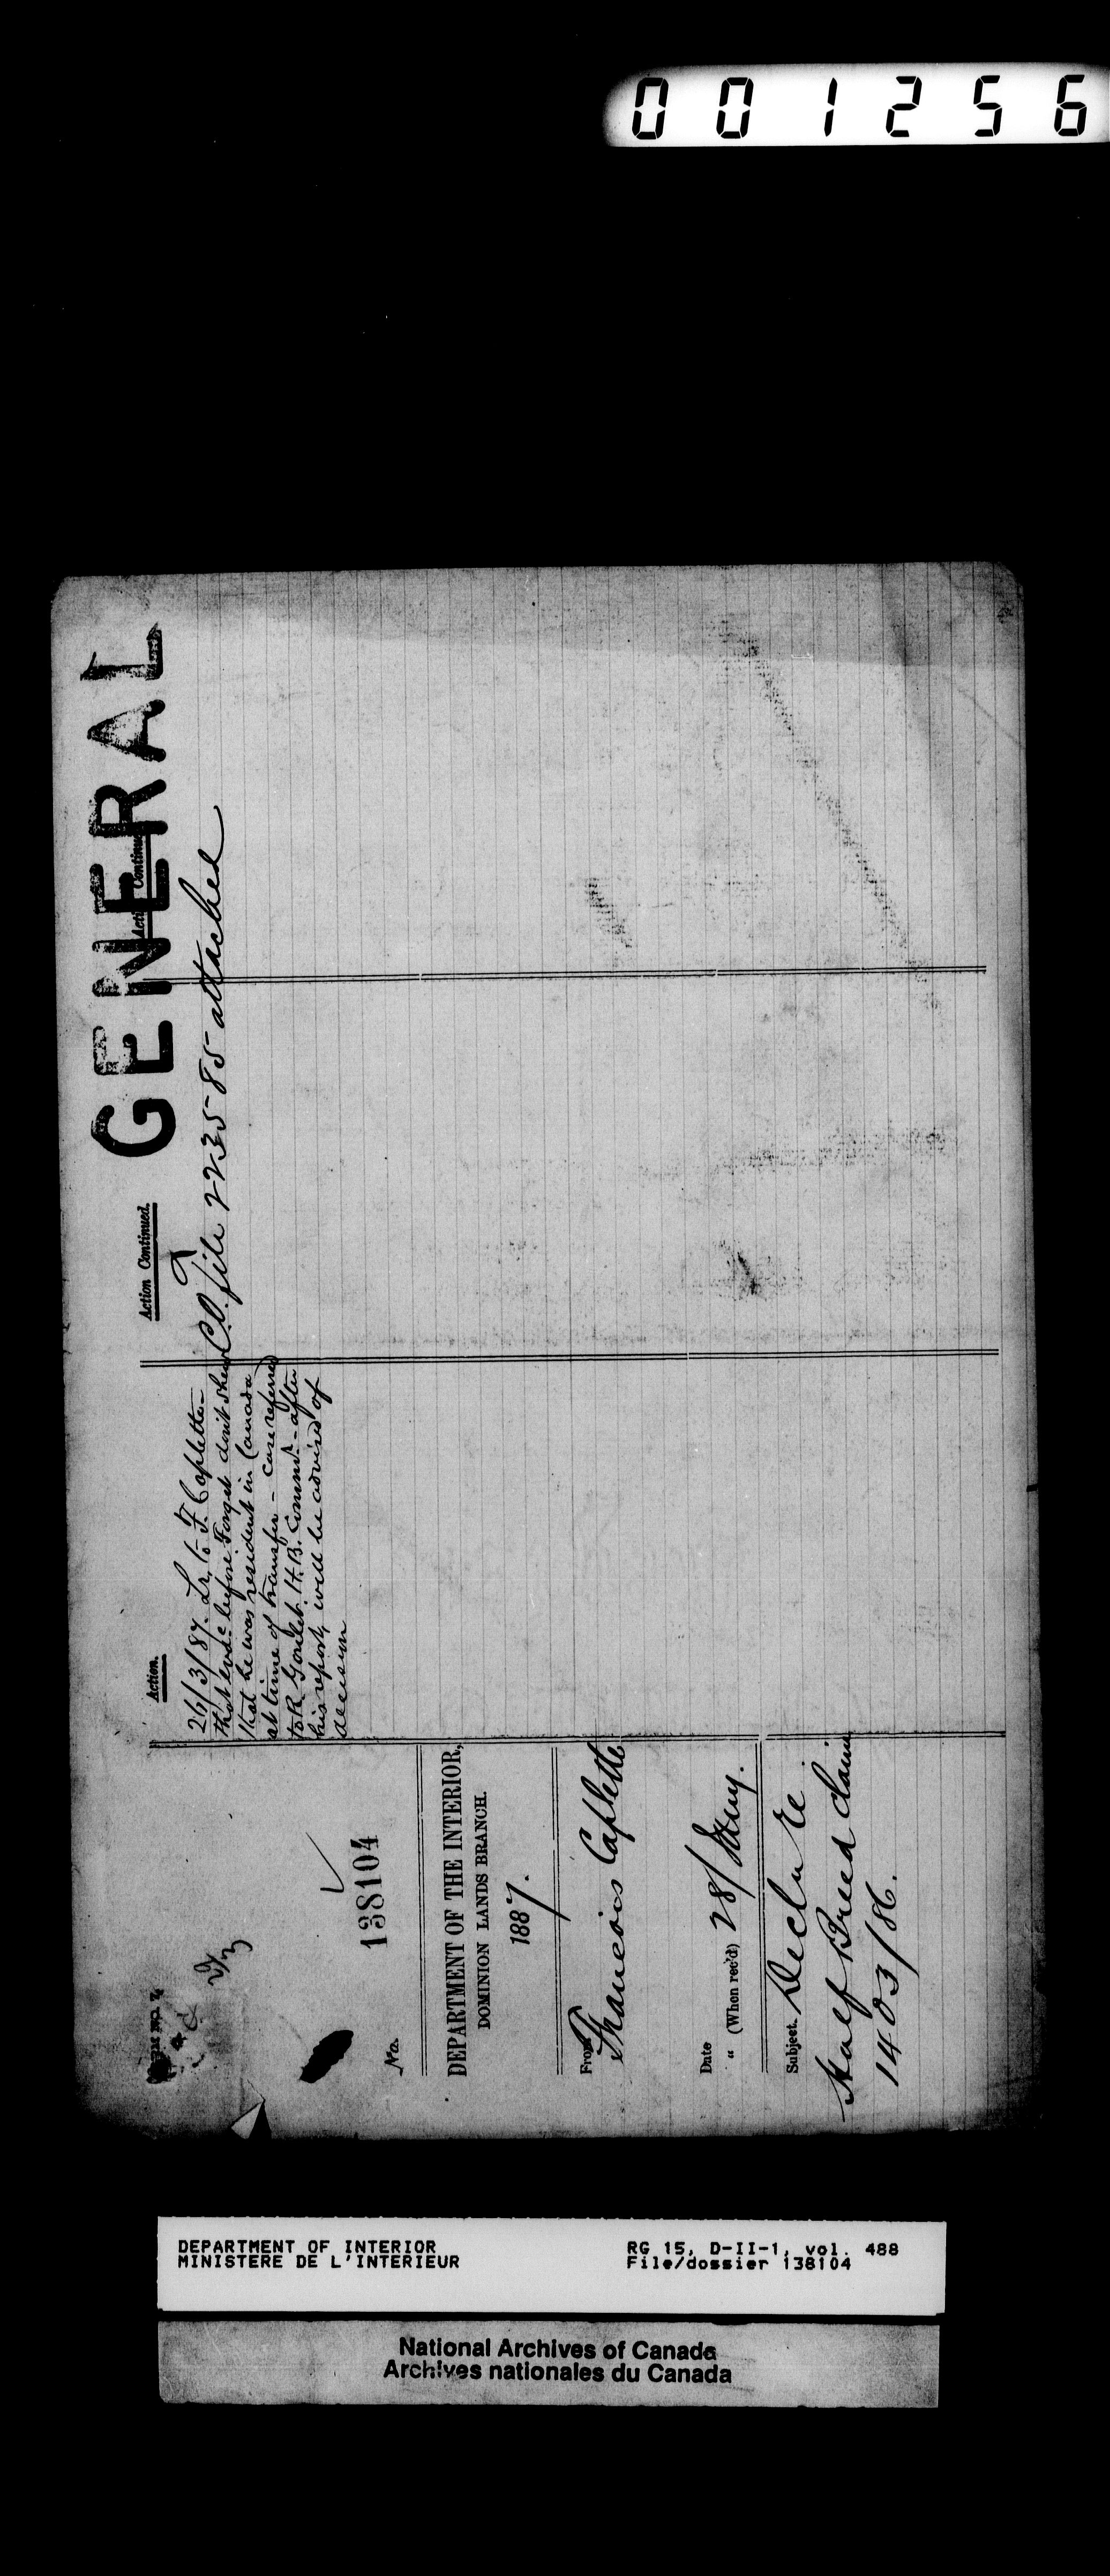 001256
GENERAL
No. 138104
DEPARTMENT OF THE INTERIOR,
DOMINION LANDS BRANCH.
1887.
From Francois Caplette
Date
" (When rec'd) 28/
Subject. Decln re
Half Breed claim
1403/86.
Action.
26/3/87. Lr. to F. Caplette-
that evdc before Forget don't shew
that he was resident in Canada
at time of transfer - case referred
to R. Goulet. H.B. Commr. - after
his report, will be advised of
decision
Action Continued.
C.O. file 223585 attached
Action Continu
DEPARTMENT OF INTERIOR
MINISTERE DE L'INTERIEUR
RG 15, D-II-1, vol. 488
File/dossier 138104
National Archives of Canada
Archives nationales du Canada